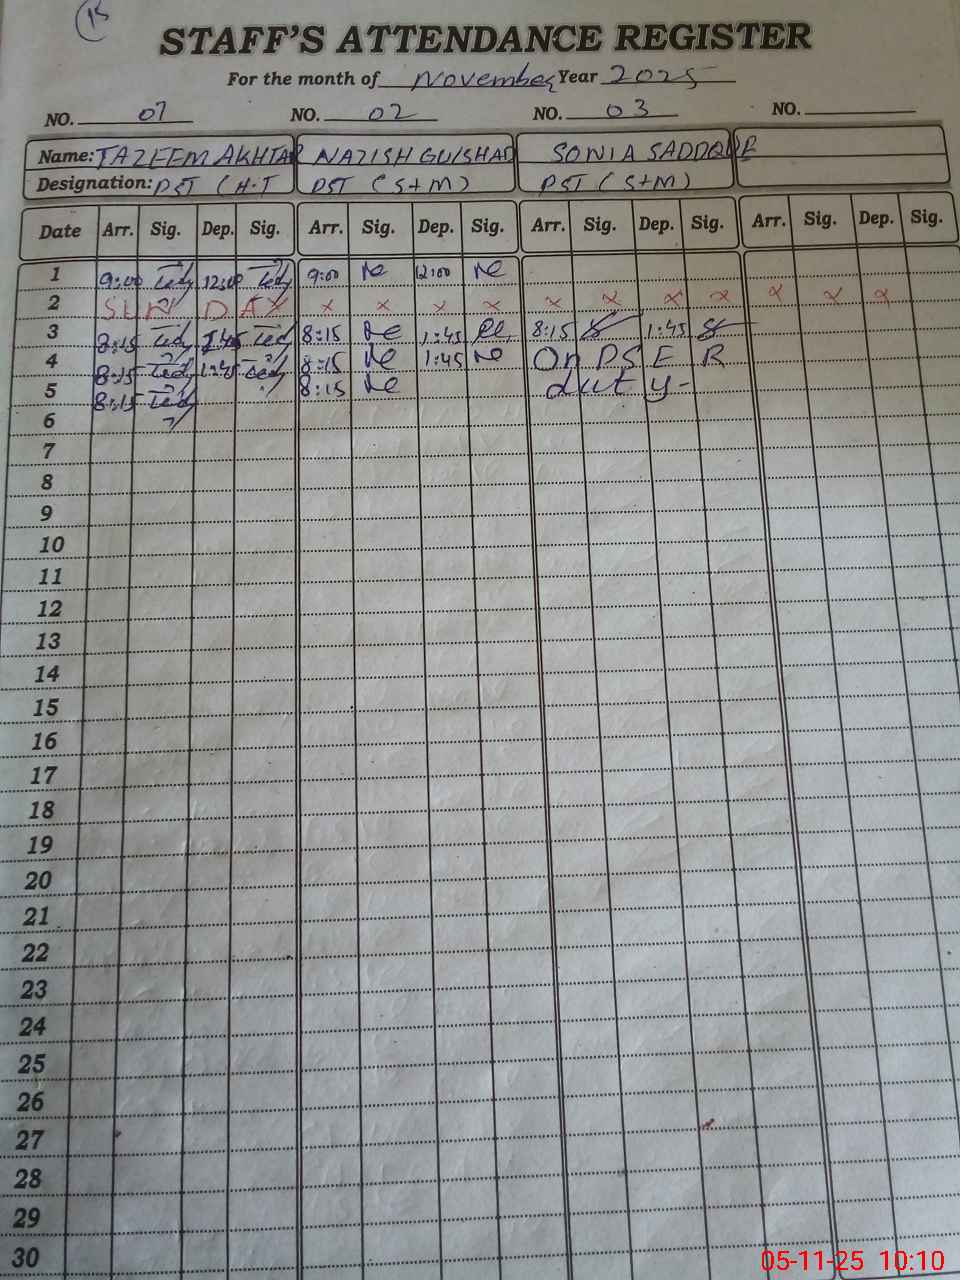 15
STAFF'S ATTENDANCE REGISTER
For the month of November Year 2025
NO. 01 NO. 02 NO. 03 NO.
Name: TAZEEM AKHTAR NAZISH GULSHAD SONIA SADDQUE
Designation: PST (H.T PST (S+M) PST (S+M)
Date Arr. Sig. Dep. Sig. Arr. Sig. Dep. Sig. Arr. Sig. Dep. Sig. Arr. Sig. Dep. Sig.
1 9:00 12:00 9:00 12:00
2 SUNDAY x x x x x x x x x x x
3 8:15 1:45 8:15 1:45 8:15 1:45
4 8:15 1:45 8:15 1:45 On PSER
5 8:15 8:15 duty-
6
7
8
9
10
11
12
13
14
15
16
17
18
19
20
21
22
23
24
25
26
27
28
29
30
05-11-25 10:10